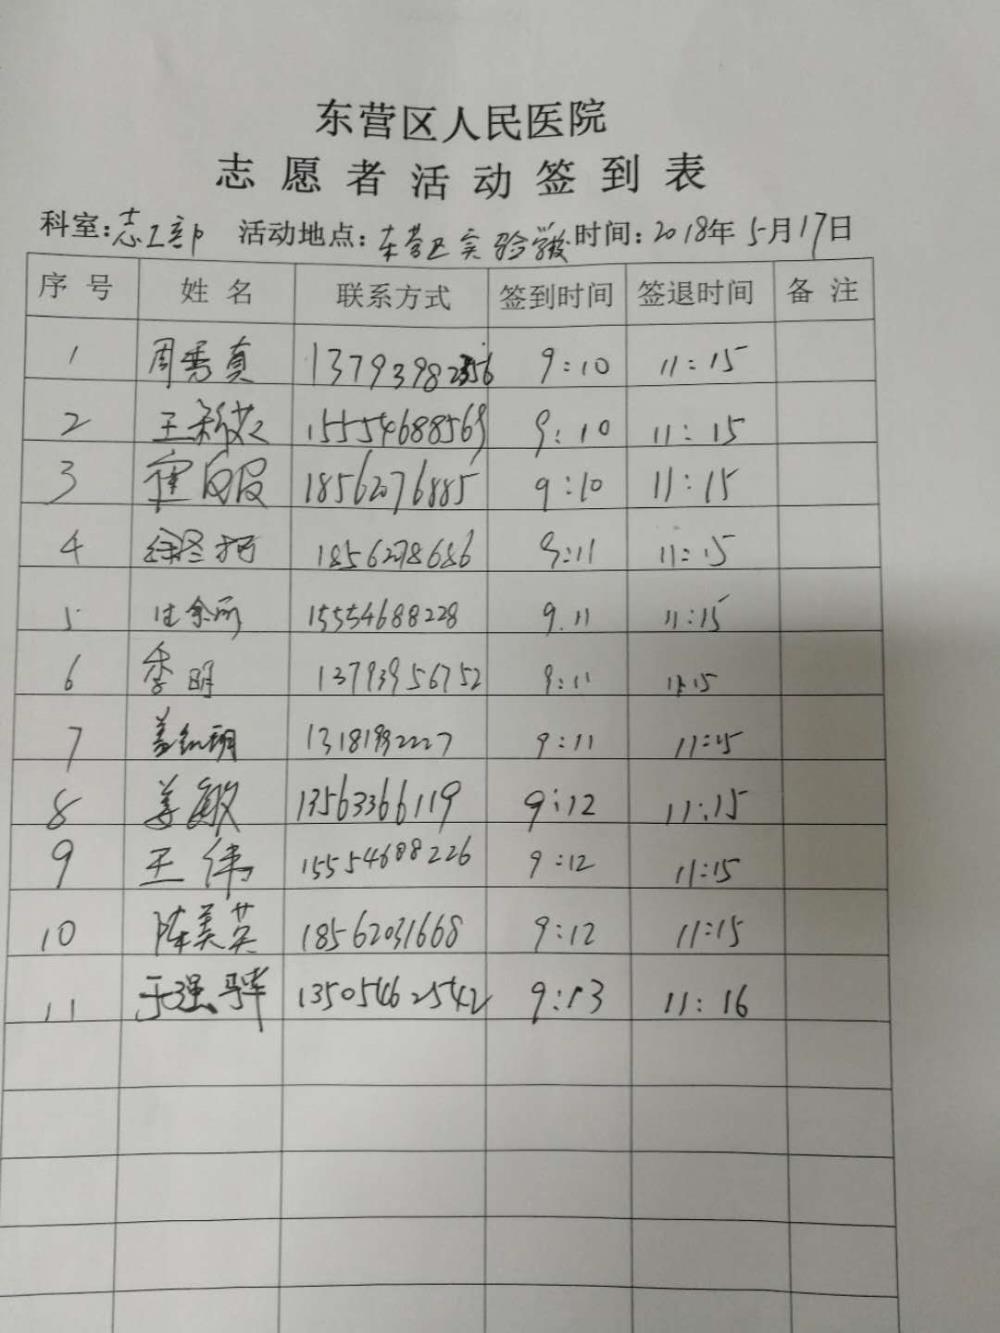 东营区人民医院
志愿者活动签到表
科室:志工部 活动地点:东营区实验学校 时间:2018年5月17日
序号 姓名 联系方式 签到时间 签退时间 备注
1 周秀真 13793982356 9:10 11:15
2 王 15554688569 9:10 11:15
3 崔 18562076885 9:10 11:15
4 徐 1856278686 9:11 11:15
5 15554688228 9.11 11:15
6 季明 13793956752 9:11 11:15
7 姜红明 1318192227 9:11 11:15
8 姜敏 13563366119 9:12 11:15
9 王伟 15554688226 9:12 11:15
10 陈美英 18562031668 9:12 11:15
11 于强骅 13505462542 9:13 11:16